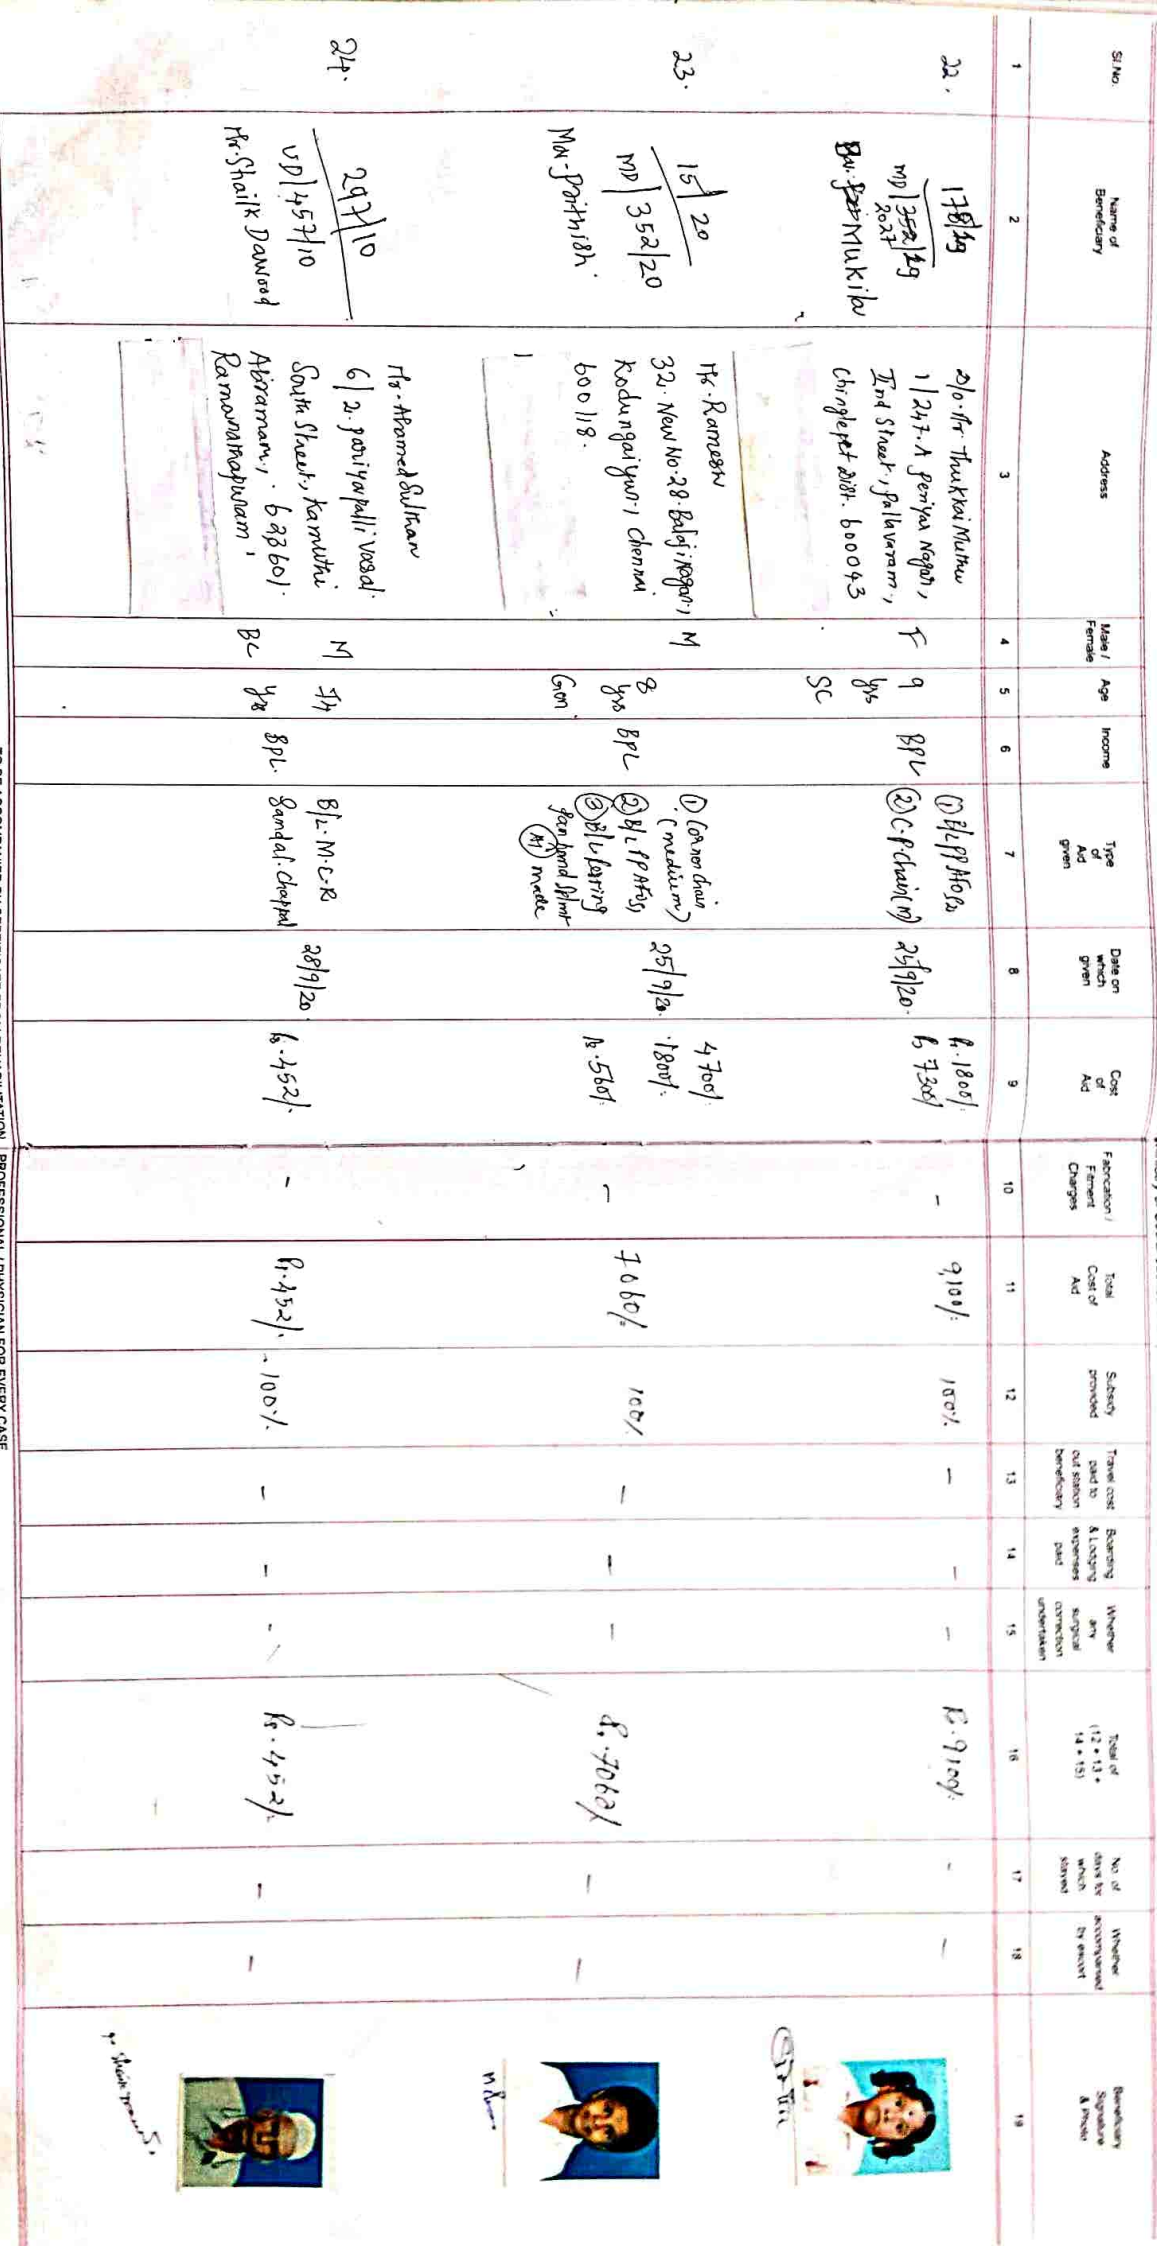 Sl.No.
Name of
Beneficiary
Address
Male /
Female
Age
Income
Type
of
Aid
given
Date on
which
given
Cost
of
Aid
Fabrication /
Fitment
Charges
Total
Cost of
Aid
Subsidy
provided
Travel cost
paid to
out station
beneficiary
Boarding
& Lodging
expenses
paid
Whether
any
surgical
correction
undertaken
Total of
(12 + 13 +
14 + 15)
No. of
days for
which
stayed
Whether
accompanied
by escort
Beneficiary
Signature
& Photo
1 2 3 4 5 6 7 8 9 10 11 12 13 14 15 16 17 18 19
22.
178/19
MD/352/19
2027
Mukila
D/o. Mr Thukkai Muthu
1/247. A Periyar Nagar,
IInd Street, Pallavaram,
Chinglepet Dist. 600043
F
9
yrs
SC
BPL
① B/L PP AFOs
② C.P. Chair (M)
25/9/20.
Rs. 1800/.
Rs 7300/
-
9,100/.
100%
-
-
-
Rs. 9100/.
-
-
23.
15/20
MD/352/20
Mas-Prithish
Mr. Ramesh
32. New No. 28. Balaji Nagar,
Kodungaiyur, Chennai
600118.
M
8
yrs
Gen.
BPL
① Corner chair
(medium)
② B/L PP AFOs,
③ B/L
made
25/9/20.
4700/.
1800/.
Rs. 560/.
-
7060/.
100%
-
-
-
Rs. 7060/
-
-
24.
297/10
VD/457/10
Mr. Shaik Dawood
Mr. Ahamed Sulthan
6/2. Pariyapalli Vasal.
South Street, Kamuthi
Abiramam, . 623601.
Ramanathapuram.
M
BC
74
yrs
BPL.
B/L. M.C.R
Sandal. Chappal
28/9/20.
Rs. 452/.
-
Rs. 452/.
100%
-
-
-
Rs. 452/.
-
-
PROFESSIONAL / PHYSICIAN FOR EVERY CASE